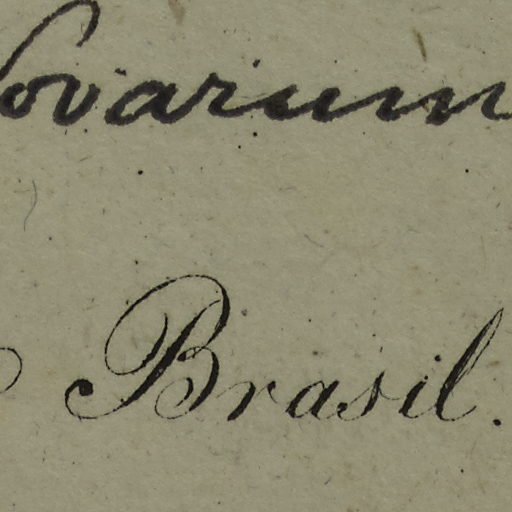 ovarum
Brasil.